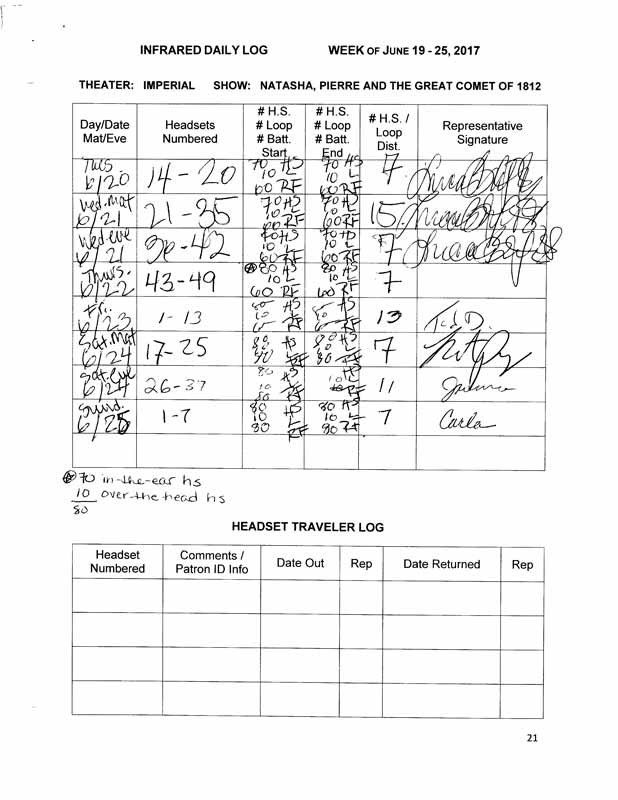 INFRARED DAILY LOG WEEK OF JUNE 19 - 25, 2017
THEATER: IMPERIAL SHOW: NATASHA, PIERRE AND THE GREAT COMET OF 1812
Day/Date Mat/Eve Headsets Numbered # H.S. # Loop # Batt. Start # H.S. # Loop # Batt. End # H.S. / Loop Dist. Representative Signature
Tues 6/20 14 - 20 70 HS 10 L 60 RF 70 HS 10 L 60 RF 7
Wed. mat 6/21 21 - 35 70 HS 10 60 RF 70 HS 10 L 60 RF 15
Wed. eve 6/21 36 - 42 70 HS 10 L 60 RF 70 HS 10 L 60 RF 7
Thurs. 6/22 43 - 49 80 HS 10 L 60 RF 80 HS 10 L 60 RF 7
Fri. 6/23 1 - 13 HS HS 13 Ted D.
Sat. Mat 6/24 17 - 25 80 HS 80 HS 10 L 80 7
Sat. Eve 6/24 26 - 37 80 HS 10 80 HS 10 L 11
Sund. 6/25 1 - 7 80 HS 10 L 80 RF 80 HS 10 L 80 RF 7 Carla
70 in-the-ear hs
10 over-the head hs
80
HEADSET TRAVELER LOG
Headset Numbered Comments / Patron ID Info Date Out Rep Date Returned Rep
21